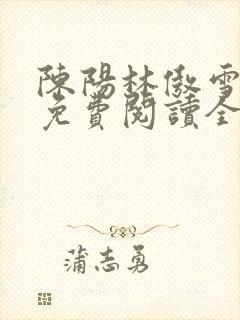 陳陽林傲雪
免費閱讀全
蒲志勇